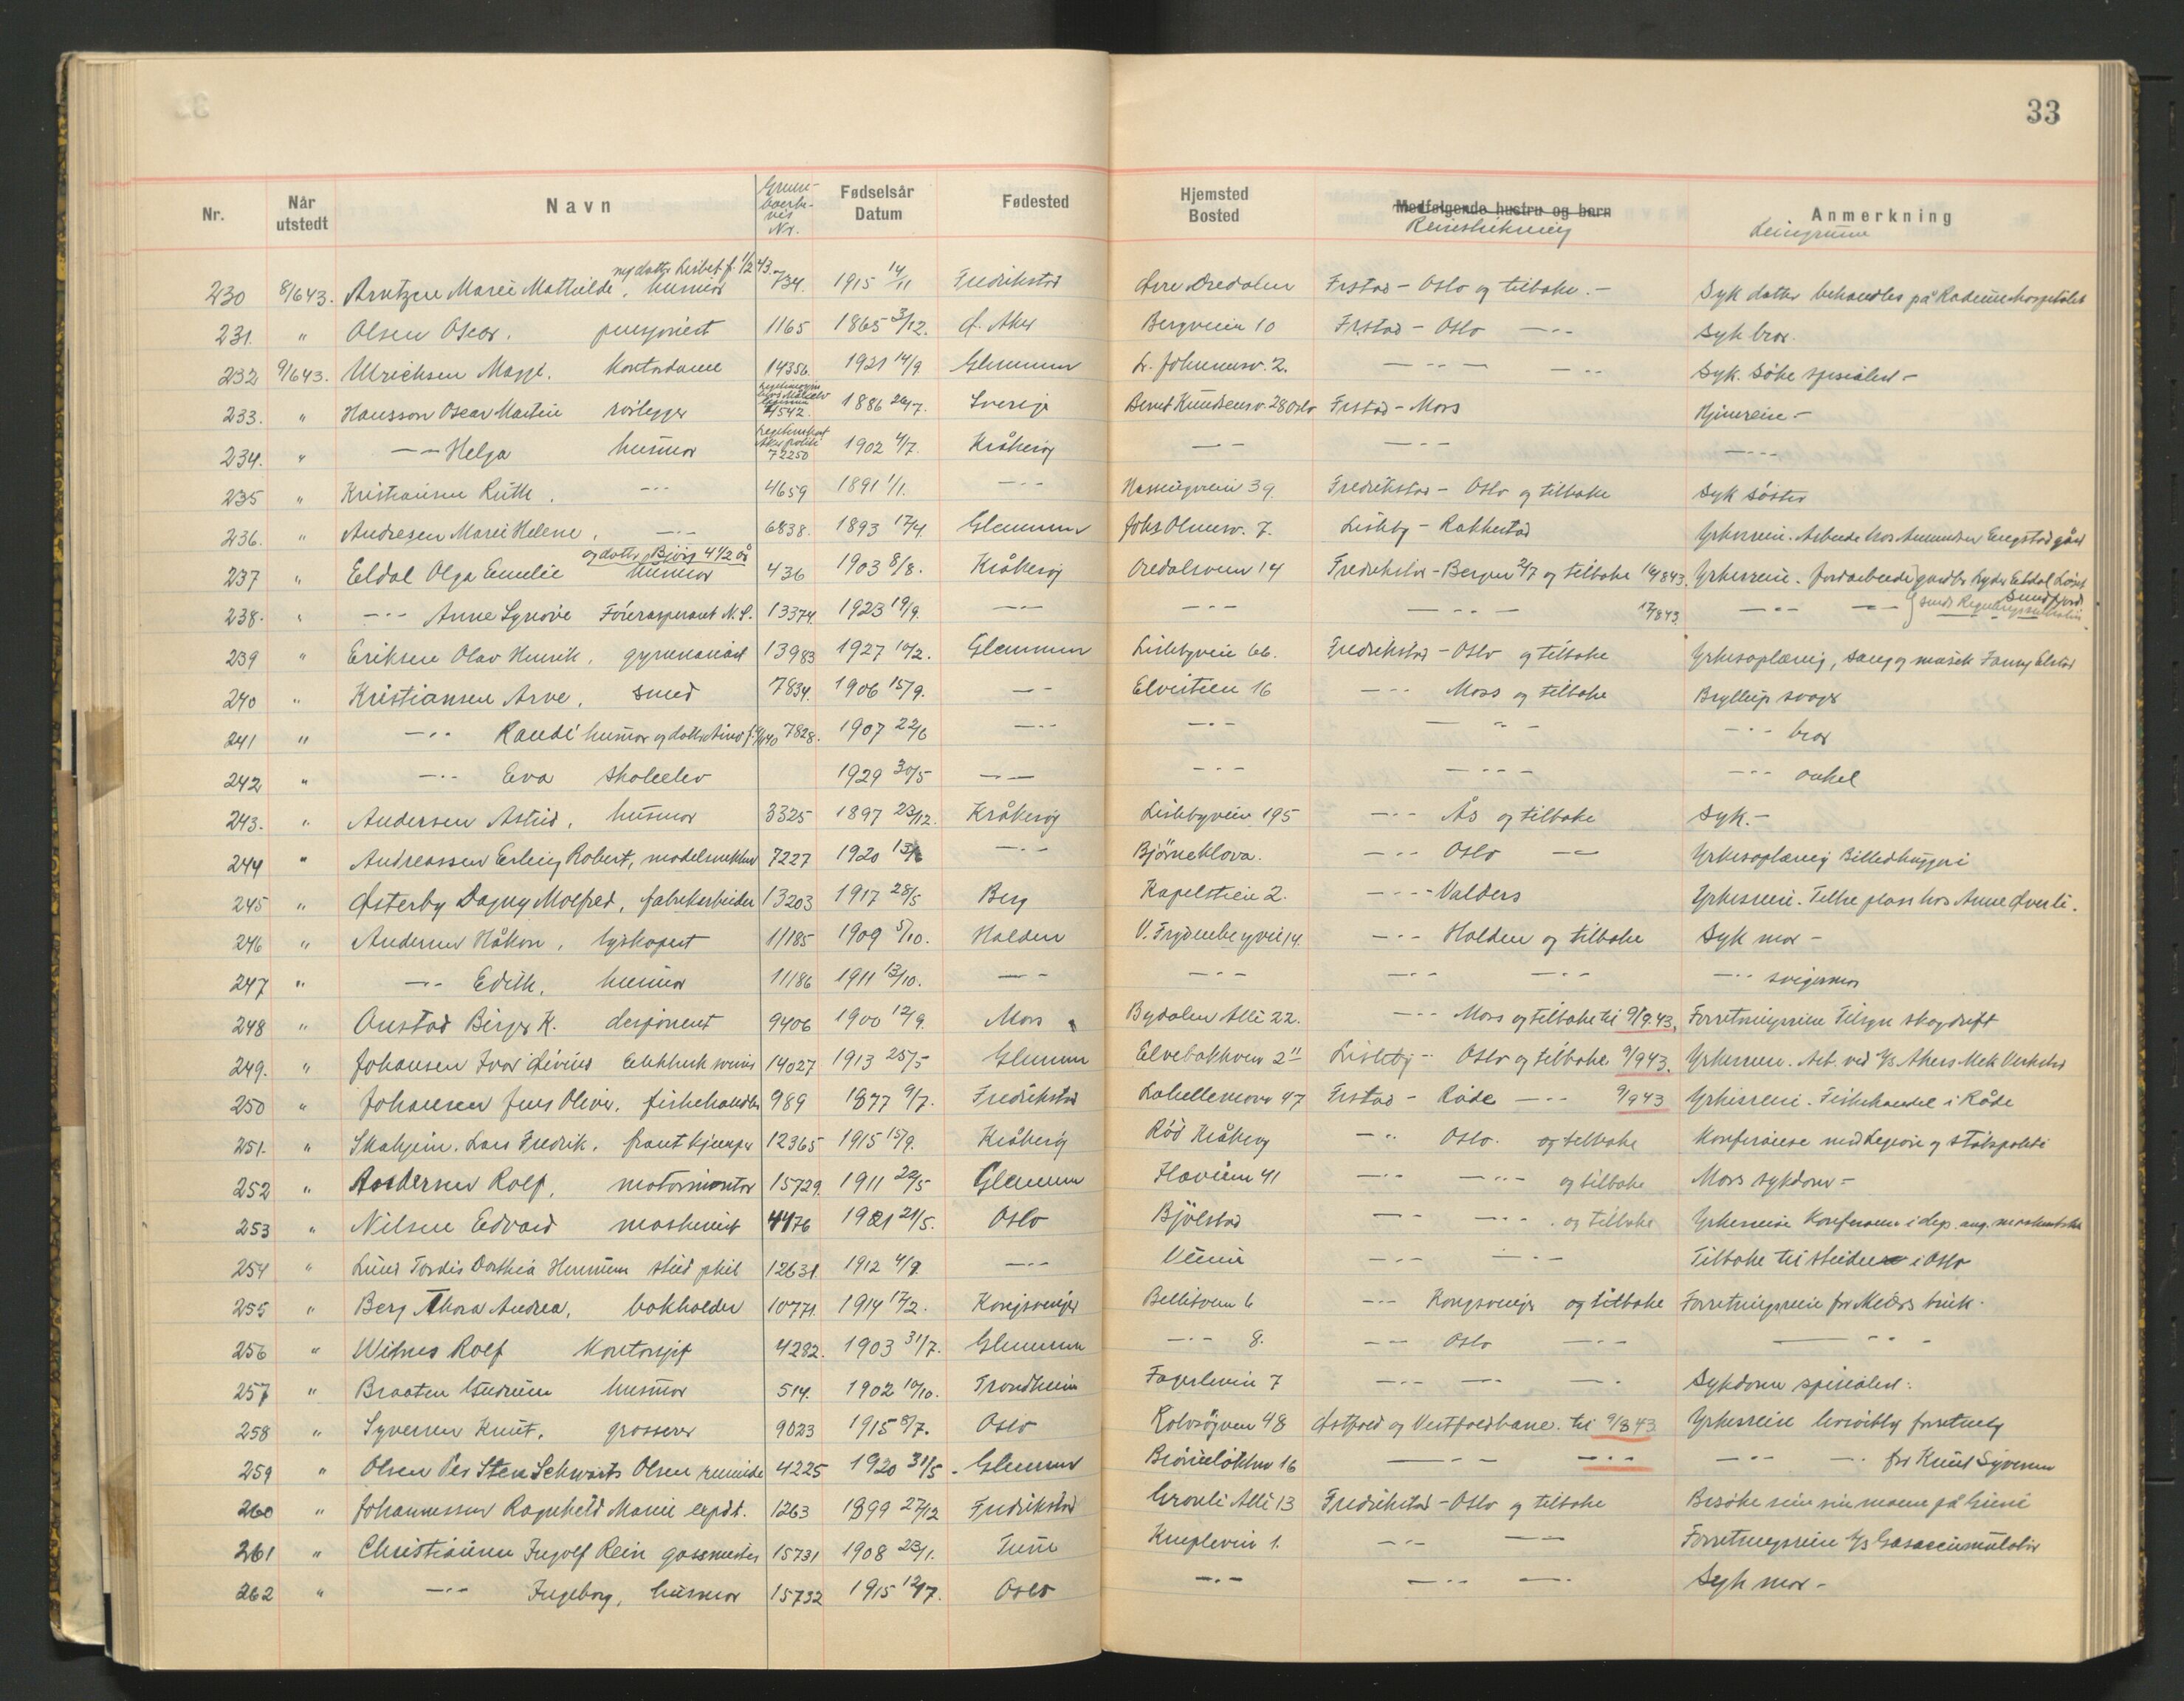 33
Nr. Når utstedt Navn Grense- boerbe- vis Nr. Fødselsår Datum Fødested Hjemsted Bosted Medfølgende hustru og barn Reisestrekning Anmerkning
og datter Lisbet f. 1/2 43.
230 8/6 43. Arntzen Marie Mathilde, husmor 734. 1915 14/11 Fredrikstad Øvre Oredalen Frstad - Oslo og tilbake. - Syk datter behandles på Radiumhospitalet
231. " Olsen Oscar. pensjonist 1165 1865 3/12. Ø. Aker Bergveien 10 Frstad - Oslo -"- Syk bror.
232 9/6 43. Ulrichsen Margit. Kontordame 14356. 1921 14/9 Glemmen L. Johnsensv. 2. -"- -"- Syk. Søke spesialist -
233. " Hansson Oscar Martin rørlegger 4542. 1886 26/7. Sverige Bernt Knudsensv. 28 Oslo Frstad - Moss Hjemreise -
234. " -"- Helga husmor 72250 1902 4/7. Kråkerøy -"- -"- -"-
235 " Kristiansen Ruth, -"- 4659 1891 1/1. -"- Nassingveien 39. Fredrikstad - Oslo og tilbake Syk søster
236. " Andresen Marie Helene, -"- 6838. 1893 17/4. Glemmen Johs Olsensv. 7. Lisleby - Rakkestad Yrkesreise. Arbeide hos Amundsen Engstad gård
og datter Bjørg 4 1/2 år
237 " Eldal Olga Emelie husmor 436 1903 8/8. Kråkerøy Oredalsveien 14 Fredrikstad - Bergen 2/7 og tilbake 14/8 43. Yrkesreise. jordarbeide gardbr.
238. " -"- Anne Synøve Føreraspirant N.S. 13374. 1923 19/9. -"- -"- -"- 17/8 43. -"- -"-
239 " Eriksen Olav Henrik, gymnasiast 13983 1927 10/2. Glemmen Lislebyveien 66. Fredrikstad - Oslo og tilbake Yrkesoplæring, sang og musik Fanny Elstad
240 " Kristiansen Arve, smed 7834. 1906 15/9. -"- Elvestien 16 -"- Moss og tilbake Bryllup svoger
241 " -"- Randi husmor og datter 7828. 1907 22/6 -"- -"- -"- -"- bror
242 " -"- Eva skoleelev 1929 30/5 -"- -"- -"- -"- onkel
243. " Andersen Astrid, husmor 3325 1897 23/12. Kråkerøy Lislebyveien 195 -"- Ås og tilbake Syk. -
244 " Andreassen Erling Robert, modelsnekker 7227 1920 13/6 -"- Bjørneklova. -"- Oslo -"- Yrkesoplæring Billedhuggeri
245 " Østerby Dagny Molfred, fabrikarbeider 13203 1917 28/5 Berg Kapelstien 2. -"- Valders Yrkesreise. Tiltre plass hos Anne Øverli.
246 " Andersen Håkon, lyskopist 11185 1909 5/10. Halden V. Frydenbergvei 14. -"- Halden og tilbake Syk mor -
247 " -"- Edith, husmor 11186 1911 13/10. -"- -"- -"- -"- -"- svigermor
248 " Onstad Birger K. disponent 9406 1900 12/9. Moss Bydalen Alle 22. -"- Moss og tilbake til 9/9.43. Forretningsreise Tilsyn skogdrift
249. " Johansen Ivar Øivind Elektrisk sveiser 14027 1913 25/5 Glemmen Elvebakkveien 2" Lisleby - Oslo og tilbake 9/9 43. Yrkesreise. Arb. ved A/S Akers Mek Verksted
250 " Johansen Jens Oliver. fiskehandler 989 1877 9/7. Fredrikstad Labellemoen 47 Frstad - Råde -"- 9/9 43 Yrkesreise. Fiskehandel i Råde
251. " Skahjem. Lars Fredrik. frontkjemper 12365 1915 15/9. Kråkerøy Rød Kråkerøy -"- Oslo. og tilbake Konferanse med Legion og statspoliti
252 " Andersen Rolf, motormontør 15729. 1911 22/5 Glemmen Haveien 41 -"- -"- og tilbake Mors sykdom -
253 " Nilsen Edvard maskinist 4476 1921 21/5. Oslo Bjølstad -"- -"- og tilbake Yrkesreise Konferanse i dep. ang.
254 " Lund Tordis Dorthea Hermine stud phil 12631 1912 4/9. -"- Veum -"- -"- Tilbake til studier i Oslo
255 " Berg Thora Andrea, bokholder 10771. 1914 17/2. Kongsvinger Bellisveien 6 -"- Kongsvinger og tilbake Forretningsreise for Melørs bruk.
256 " Witnes Rolf Kontorsjef 4282. 1903 31/7. Glemmen -"- 8. -"- Oslo -"- -"-
257 " Braaten Gudrun husmor 514. 1902 10/10. Trondheim Fagerliveien 7 -"- -"- -"- Sykdom spesialist.
258 " Syversen Knut, grosserer 9023 1915 8/7. Oslo Rolvsøyveien 48 Østfold og Vestfoldbane. til 9/8 43 Yrkesreise forretning
259 " Olsen Per Sten Schwartz Olsen reisende 4225 1920 31/5. Glemmen Bjørneløkken 16 -"- -"- -"- -"- for Knut Syversen
260 " Johannessen Ragnhild Marie expdt. 1263 1899 27/12 Fredrikstad Gronli Alle 13 Fredrikstad - Oslo og tilbake Besøke sin sin mann på Grini
261 " Christiansen Ingolf Rein gassmester 15731 1908 23/1. Tune Knipleveien 1. -"- -"- Forretningsreise A/S Gasaccumulator
262 " -"- Ingeborg, husmor 15732 1915 12/7. Oslo -"- -"- -"- Syk mor -